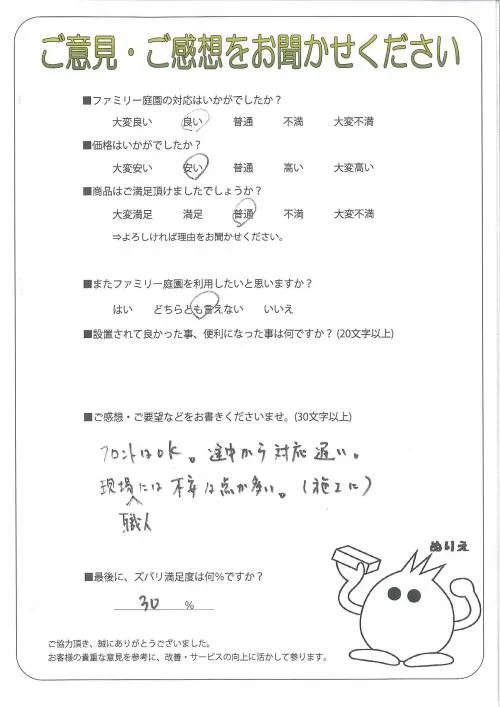 ご意見・ご感想をお聞かせください
■ファミリー庭園の対応はいかがでしたか？
大変良い 良い 普通 不満 大変不満
■価格はいかがでしたか？
大変安い 安い 普通 高い 大変高い
■商品はご満足頂けましたでしょうか？
大変満足 満足 普通 不満 大変不満
⇒よろしければ理由をお聞かせください。
■またファミリー庭園を利用したいと思いますか？
はい どちらとも言えない いいえ
■設置されて良かった事、便利になった事は何ですか？(20文字以上)
■ご感想・ご要望などをお書きくださいませ。(30文字以上)
フロントはOK。途中から対応遅い。
現場には不安な点が多い。(施工に)
職人
ぬりえ
■最後に、ズバリ満足度は何%ですか？
30 %
ご協力頂き、誠にありがとうございました。
お客様の貴重な意見を参考に、改善・サービスの向上に活かして参ります。